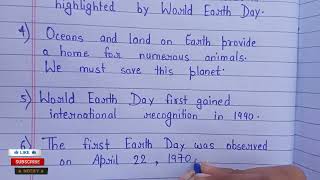 highlighted by World Earth Day.
4) Oceans and land on Earth provide
a home for numerous animals.
We must save this planet.
5) World Earth Day first gained
international recognition in 1990.
6) The first Earth Day was observed
on April 22, 1970.
LIKE
SUBSCRIBE